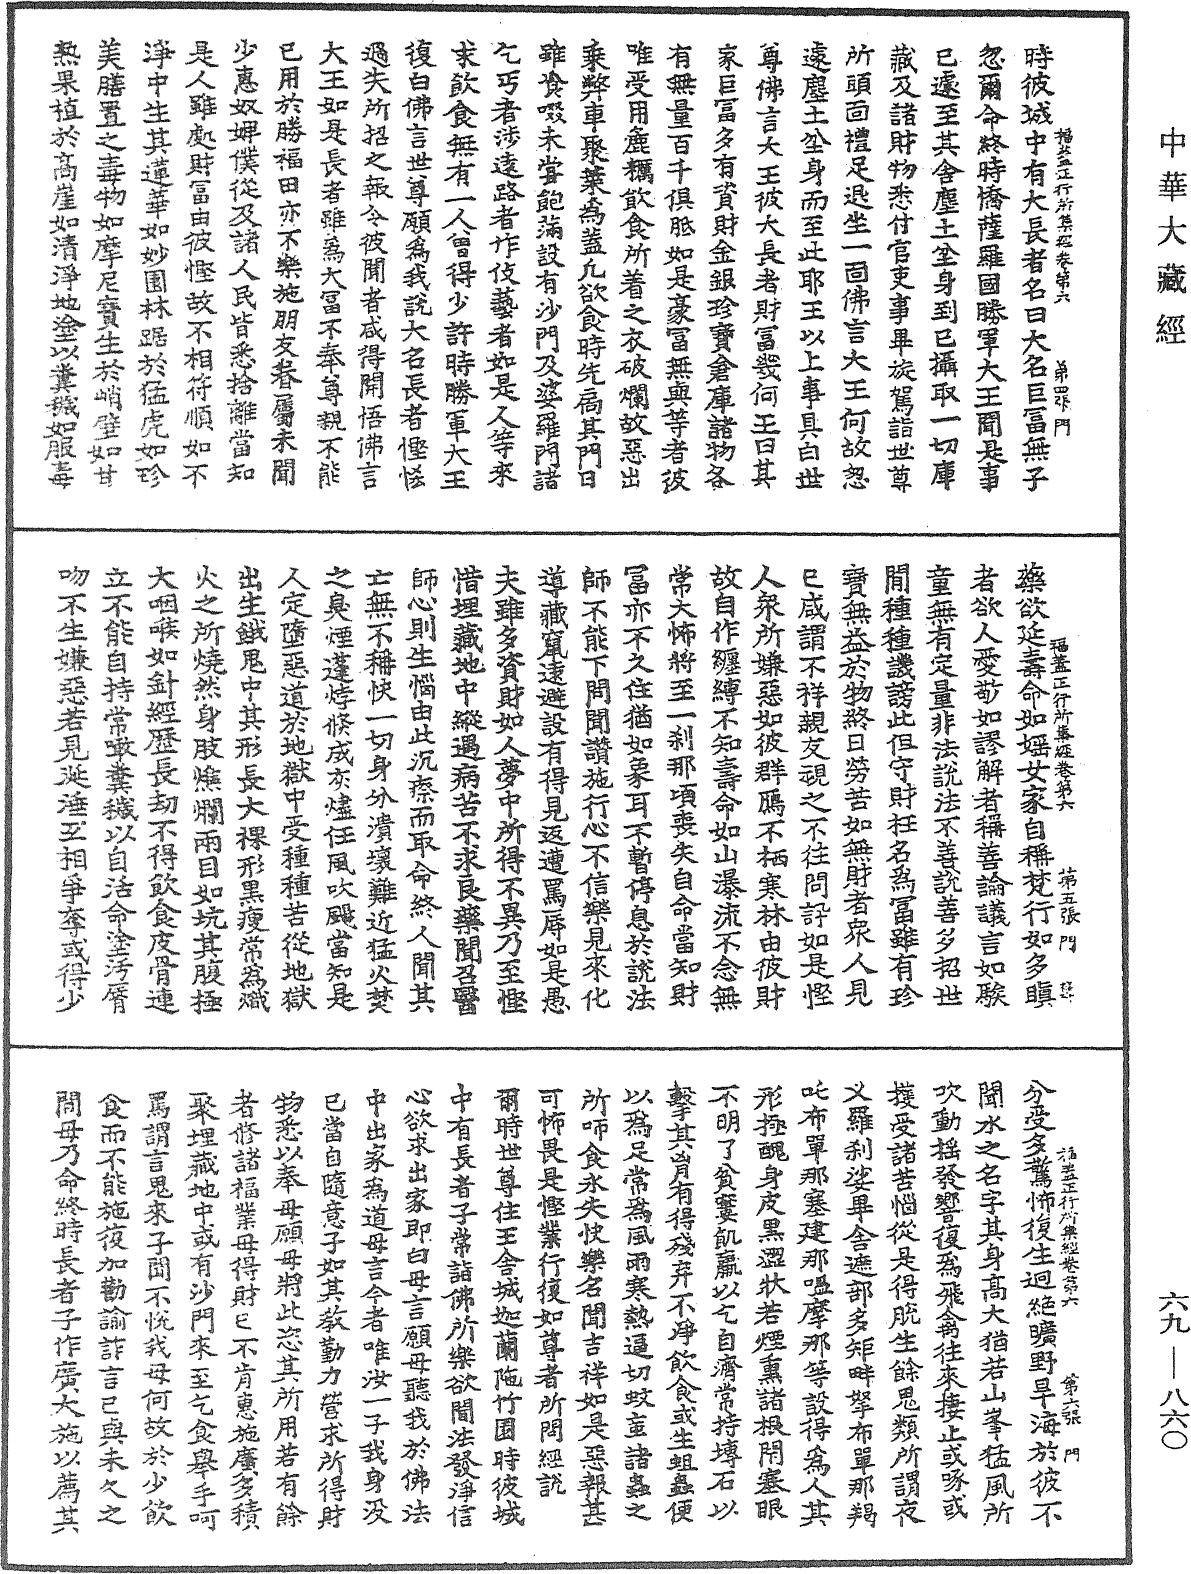 中華大藏經
福蓋正行所集經卷第六 第四張 門
時彼城中有大長者名曰大名巨冨無子
忽爾命終時憍薩羅國勝軍大王聞是事
已遽至其舍塵土坌身到已攝取一切庫
藏及諸財物悉付官吏事畢旋駕詣世尊
所頭面禮足退坐一面佛言大王何故忽
遽塵土坌身而至此耶王以上事具白世
尊佛言大王彼大長者財冨幾何王曰其
家巨冨多有資財金銀珍寶倉庫諸物各
有無量百千俱胝如是豪冨無與等者彼
唯受用麁糲飲食所着之衣破爛故惡出
乘弊車聚葉為蓋凡欲食時先扃其門日
雖食啜未甞飽滿設有沙門及婆羅門諸
乞丐者涉遠路者作伎藝者如是人等來
求飲食無有一人曾得少許時勝軍大王
復白佛言世尊願為我說大名長者慳悋
過失所招之報令彼聞者咸得開悟佛言
大王如是長者雖為大冨不奉尊親不能
已用於勝福田亦不樂施朋友眷屬未聞
少惠奴婢僕從及諸人民皆悉捨離當知
是人雖處財冨由彼慳故不相符順如不
淨中生其蓮華如妙園林踞於猛虎如珍
美膳置之毒物如摩尼寶生於峭壁如甘
熱果植於高崖如清淨地塗以糞穢如服毒
福蓋正行所集經卷第六 第五張 門
藥欲延壽命如婬女家自稱梵行如多瞋
者欲人愛敬如謬解者稱善論議言如騃
童無有定量非法說法不善說善多招世
間種種譏謗此但守財枉名為冨雖有珍
寶無益於物終日勞苦如無財者衆人見
已咸謂不祥親友視之不往問訃如是慳
人衆所嫌惡如彼群鴈不栖寒林由彼財
故自作纏縛不知壽命如山瀑流不念無
常大怖將至一刹那頃喪失自命當知財
冨亦不久住猶如象耳不暫停息於說法
師不能下問聞讚施行心不信樂見來化
導藏竄遠避設有得見返遭罵辱如是愚
夫雖多資財如人夢中所得不異乃至慳
惜埋藏地中縱遇病苦不求良藥聞召醫
師心則生惱由此沉瘵而取命終人聞其
亡無不稱快一切身分潰壞難近猛火焚
之臭煙蓬悖倏成灰燼任風吹颺當知是
人定墮惡道於地獄中受種種苦從地獄
出生餓鬼中其形長大裸形黑瘦常為熾
火之所燒然身肢燋爛兩目如坑其腹極
大咽喉如針經歷長劫不得飲食皮骨連
立不能自持常噉糞穢以自活命塗汚脣
吻不生嫌惡若見涎涶互相爭奪或得少
福蓋正行所集經卷第六 第六張 門
分受多驚怖復生迥絕曠野旱海於彼不
聞水之名字其身高大猶若山峯猛風所
吹動搖發響復為飛禽往來捿止或啄或
擭受諸苦惱從是得脫生餘鬼類所謂夜
叉羅刹娑畢舍遮部多矩畔拏布單那羯
吒布單那塞建那嗢摩那等設得為人其
形極醜身皮黑澀狀若煙熏諸根閇塞眼
不明了貧窶飢羸以乞自濟常持塼石以
擊其胷有得殘弃不淨飲食或生蛆蟲便
以為足常為風雨寒熱逼切蚊䖟諸蟲之
所咂食永失快樂名聞吉祥如是惡報甚
可怖畏是慳業行復如尊者所問經說
爾時世尊住王舍城迦蘭陁竹園時彼城
中有長者子常詣佛所樂欲聞法發淨信
心欲求出家即白母言願母聽我於佛法
中出家為道母言今者唯汝一子我身没
已當自隨意子如其教勤力營求所得財
物悉以奉母願母將此恣其所用若有餘
者修諸福業母得財已不肯惠施廣多積
聚埋藏地中或有沙門來至乞食舉手呵
罵謂言鬼來子聞不悅我母何故於少飲
食而不能施彼加勸諭詐言已與未久之
間母乃命終時長者子作廣大施以薦其
六九—八六〇